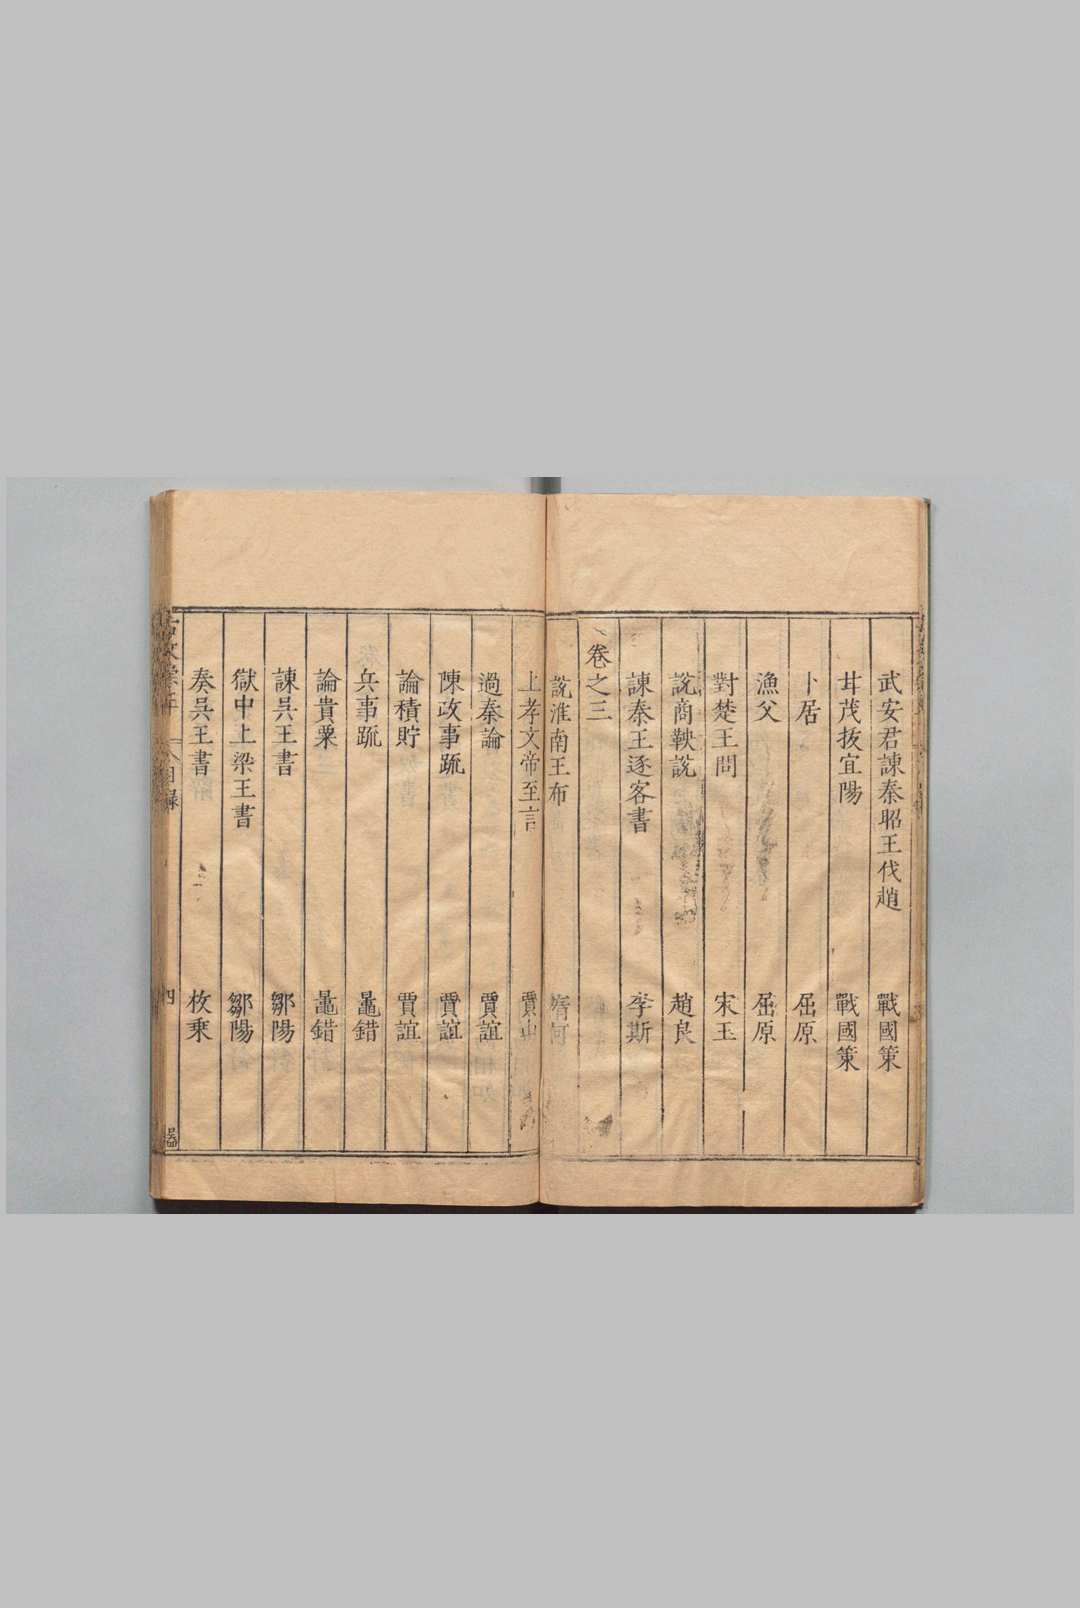 武安君諫秦昭王伐趙 戰國策
甘茂拔宜陽 戰國策
卜居 屈原
漁父 屈原
對楚王問 宋玉
說商鞅説 趙良
諫秦王逐客書 李斯
卷之三
說淮南王布 隋何
上孝文帝至言 賈山
過秦論 賈誼
陳政事疏 賈誼
論積貯 賈誼
兵事疏 鼂錯
論貴粟 鼂錯
諫吳王書 鄒陽
獄中上梁王書 鄒陽
奏吳王書 枚乘
目錄 四